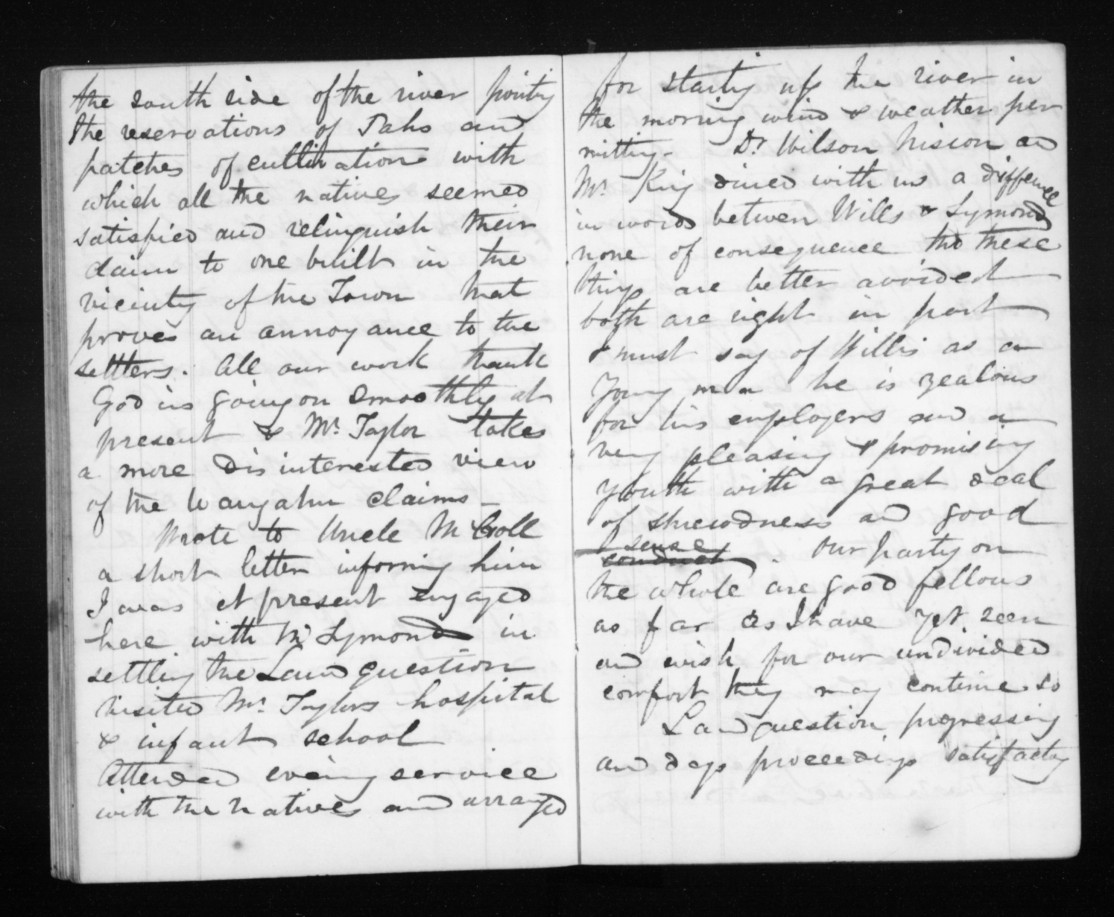 the south side of the river pointg
the reservations of Pahs and
patches of cultivation with
which all the natives seemed
satisfied and relinquish their
claim to one built in the
vicinity of the Town that
proves an annoyance to the
settlers. All our work thank
God is going on smoothly at
present & Mr. Taylor takes
a more disinterested view
of the Wangahn claims
Wrote to Uncle McCroll
a short letter informing him
I was at present engaged
here with Mr Symonds in
settling the Land question
Visited Mr. Taylors hospital
& infant school
Attended evening service
with the natives and arranged
for startg up the river in
the morning wind & weather per
mitting. Dr. Wilson Nixon and
Mr. King dined with us a difference
in words between Wills & Symonds
none of consequence tho these
things are better avoided
both are right in part
I must say of Willis as a
young man he is zealous
for his employers and a
very pleasing & promising
youth with a great deal
of shrewdness and good
sense
conduct. Our party on
the whole are good fellows
as far as I have yet seen
and wish for our undivided
comfort they may continue so
Land question progressing
and days proceedings satisfacty